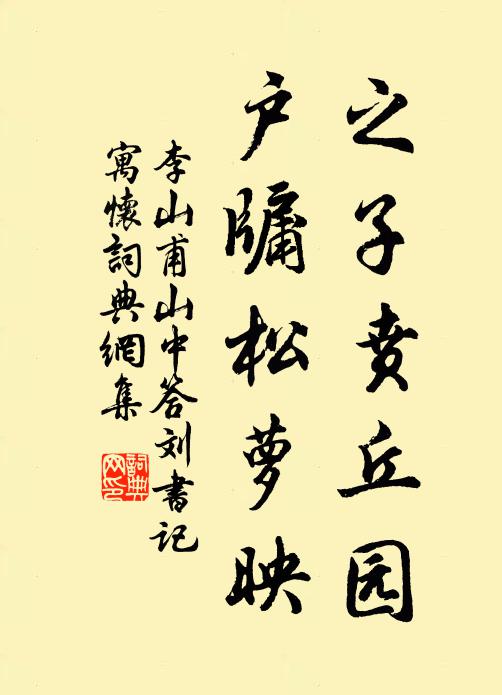 之子贲丘园
户牖松萝映
李山甫山中答刘书记
寓懷詞典網集
詞典网印